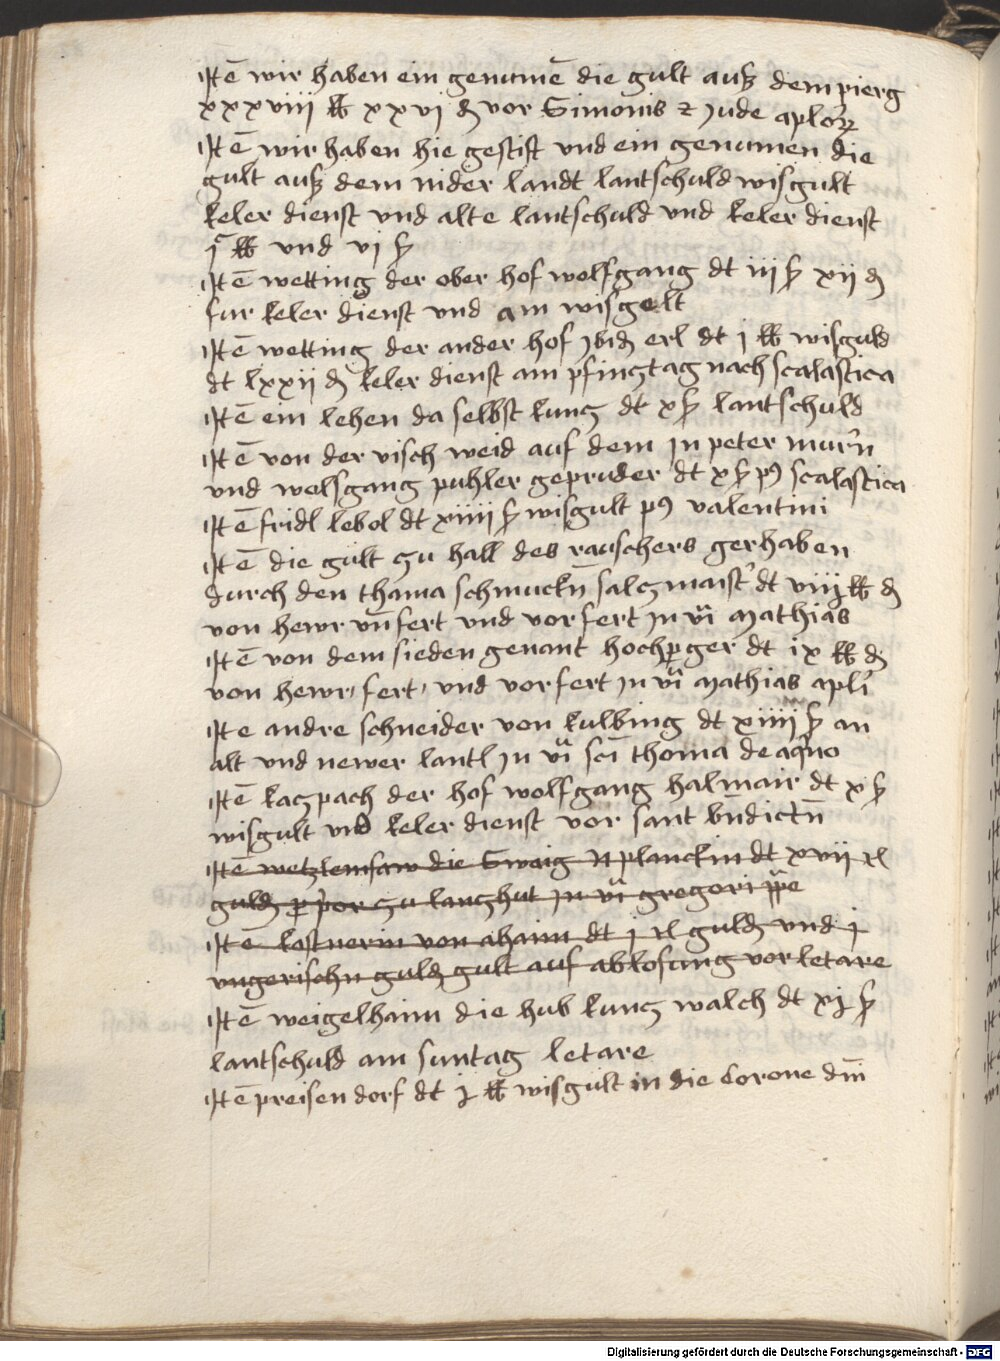 Itē wir haben ein genumē die gult auß dem pierg
xxxviii lb xxvi d vor Simonis z Jude aplorz
Itē wir haben hie gestift und ein genumen die
gult auß dem nider landt lantschuld wisgult
keler dienst und alte lantschuld und keler dienst
lb und vi ß
Itē wetting der ober hof wolfgang dt iii ß xii d
fur keler dienst und am wisgelt
Itē wetting der ander hof ibid erl dt j lb wisguld
dt lxxii d keler dienst am pfingtag nach scalastica
Itē ein lehen da selbst kung dt x ß lantschuld
Itē von der visch weid auf dem In peter
und wolfgang puhler gepruder dt x ß p9 scalastica
Itē fridl lebol dt xiiii ß wisgult p9 valentini
Itē die gult zu hall des rauschers gerhaben
durch den thama salzmaist dt viij lb d
von hewr vn fert und vorfert In vi mathias
Itē von dem sieden genant hochperger dt ix lb d
von hewr, fert, und vorfert In vi mathias apli
Ite andre schneider von kulbing dt xiiii ß an
alt und newer lantl In vi sci thoma de aqno
Itē kazpach der hof wolfgang halmair dt x ß
wisgult vnd keler dienst vor sant bndictn
Itē die Swaig N plancklin dt xvii rl
guld zu lanzhut In vi gregori ppe
Itē kastnerin von ahaim dt j rl guld und j
vngerischn guld gult auf ablosung vor letare
Itē weigelhaim die hub kunz walch dt xj ß
lantschuld am suntag letare
Itē preisendorf dt j lb wisgult in die corone dni
Digitalisierung gefördert durch die Deutsche Forschungsgemeinschaft - DFG